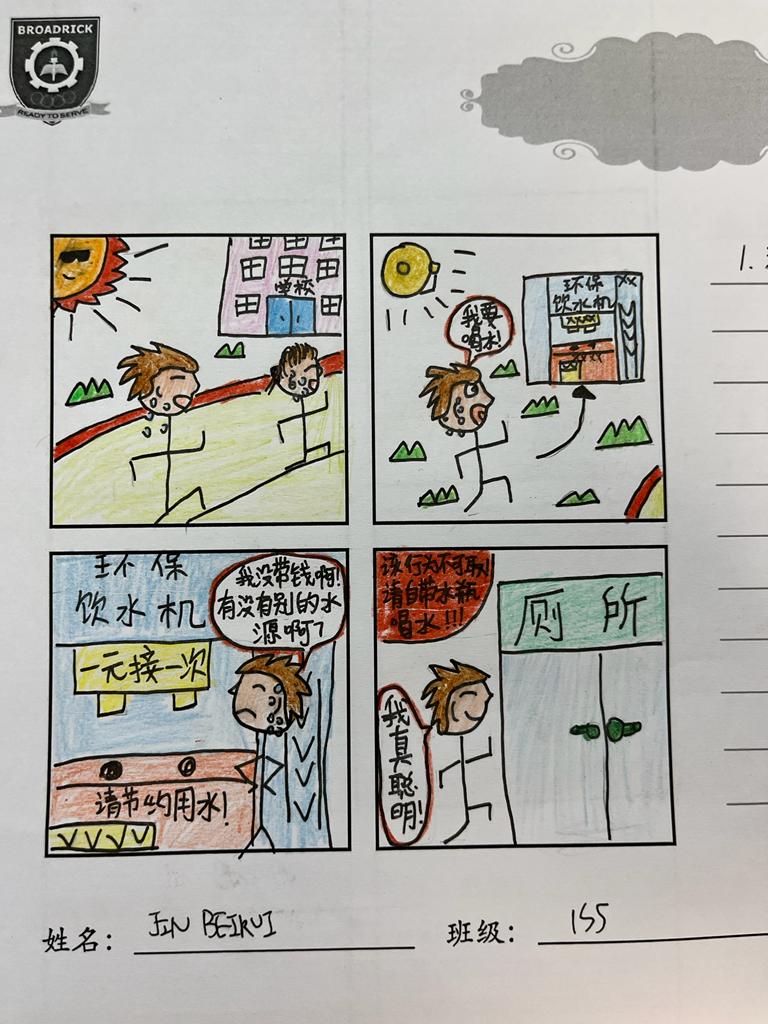 BROADRICK
READY TO SERVE
学校
我要
喝水!
环保
饮水机
XX
XXXX
XX
环保
饮水机
一元接一次
请节约用水!
我没带钱啊!
有没有别的水
源啊?
该行为不可取!
请自带水瓶
喝水!!!
厕所
我真聪明!
1.
姓名: JIN BEIRUI
班级: 1S5